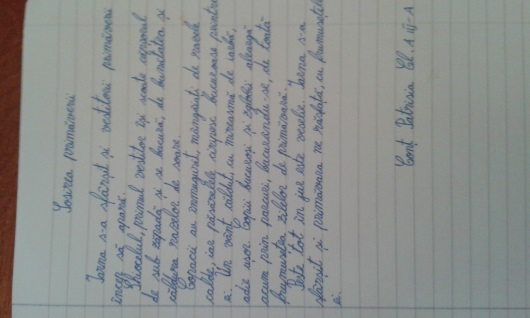 Sosirea primăverii
Iarna s-a sfârșit și vestitorii primăverii
încep să apară.
Ghiocelul, primul vestitor își scoate căpșorul
de sub zăpadă și se bucură, de bunătatea și
căldura razelor de soare.
Copacii au înmugurit, mângâiați de razele
calde, iar păsărelele ciripesc bucuroase printre
ei. Un vânt călduț, cu mireasmă de iarbă
adie ușor. Copiii bucuroși și zglobii aleargă
acum prin parcuri, bucurându-se, de toată
frumusețea zilelor de primăvară.
Peste tot în jur este veselie. Iarna s-a
sfârșit și primăvara ne răsfață, cu frumusețile
ei.
Conț Patrisia Cl. A II-A